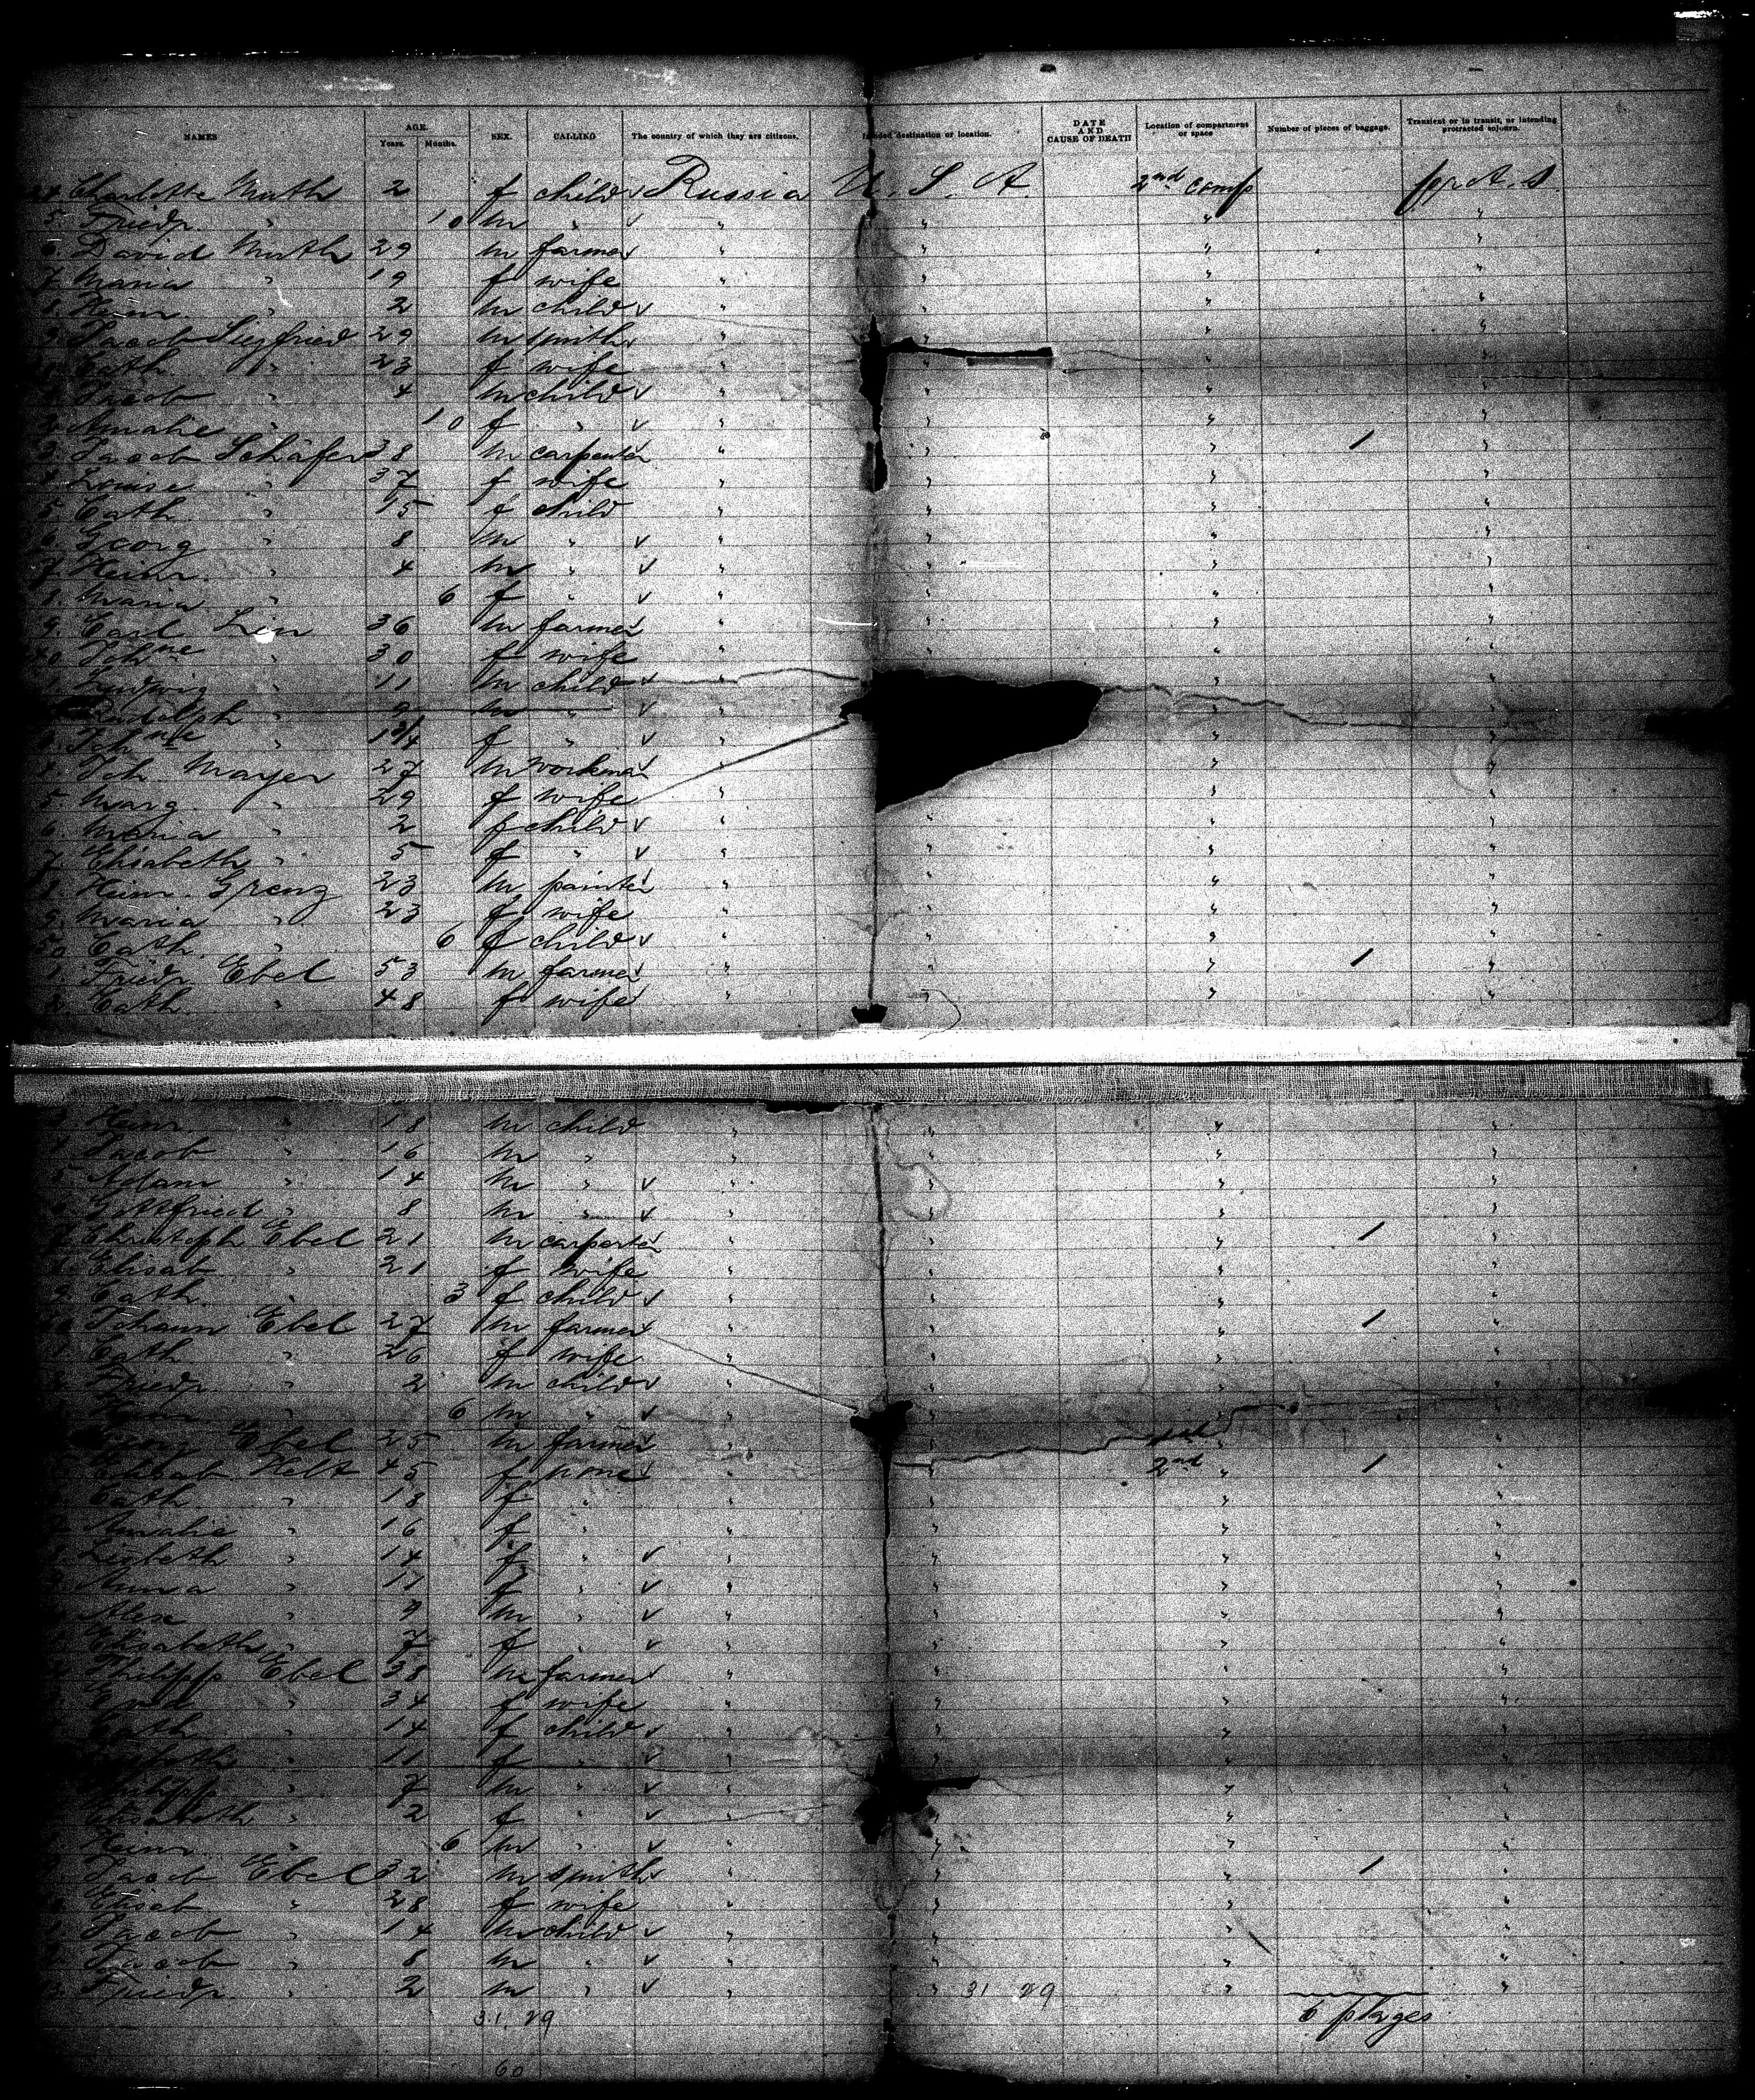 NAMES AGE. Years. Months. SEX. CALLING The country of which they are citizens. destination or location. DATE AND CAUSE OF DEATH Location of compartment or space Number of pieces of baggage. Transient or in transit, or intending protracted sojourn.
Charlotte Muth 2 f child v Russia U. S. A. 2nd Comp
5. Friedr. " 10 m " v " " " "
6. David Muth 29 m farmer " " " "
7. Maria " 19 f wife " " " "
Heinr. " 2 m child v " " " "
9. Jacob Siegfried 29 m smith " " " "
Cath. " 23 f wife " " " "
Jacob " 4 m child v " " " "
2. Amalie " 10 f " v " " " "
3. Jacob Schäfer 38 m carpenter " " " / "
4. Louise " 37 f wife " " " "
5. Cath. " 15 f child " " " "
6. Georg " 8 m " v " " " "
7. Heinr. " 4 m " v " " " "
8. Maria " 6 f " v " " " "
9. Carl 36 m farmer " " " "
Joh ne " 30 f wife " " " "
1. Ludwig " 11 m child v " " "
Rudolph " 9 m " v " " "
3. Joh ne " 1 3/4 f " v " " "
4. Joh. Mayer 27 m workman " " "
5. Marg. " 29 f wife " " "
6. Maria " 2 f child v " " " "
7. Elisabeth " 5 f " v " " " "
8. Heinr. Grenz 23 m painter " " " "
9. Maria " 23 f wife " " " "
50 Cath. " 6 f child v " " " "
1. Friedr. Ebel 53 m farmer " " " / "
2. Cath. " 48 f wife " " " "
3. Heinr. " 18 m child " " " "
4. Jacob " 16 m " " " " "
5. Adam " 14 m " v " " " "
6. Gottfried " 8 m " v " " " "
7. Christoph Ebel 21 m carpenter " " " / "
8. Elisab. " 21 f wife " " " "
9. Cath. " 3 f child v " " " "
60 Johann Ebel 27 m farmer " " " / "
1. Cath. " 26 f wife " " " "
2. Friedr. " 2 m child v " " " "
Heinr. " 6 m " v " " "
Georg Ebel 25 m farmer " " " "
Elisab. Helt 45 f none " " 2nd " / "
Cath. " 18 f " " " " "
7. Amalie " 16 f " " " " "
8. Lisbeth " 14 f " v " " " "
9. Anna " 11 f " v " " " "
Alex " 9 m " v " " " "
Elisabeth " 7 f " v " " " "
Philipp Ebel 38 m farmer " " " "
" 34 f wife " " " "
Cath. " 14 f child v " " " "
" 11 f " v " " " "
Philipp " 7 m " v " " " "
Elisabeth " 2 f " v " " " "
Heinr. " 6 m " v " " " "
Jacob Ebel 32 m smith " " " / "
Elisab. " 28 f wife " " " "
1. Jacob " 14 m child v " " " "
2. Jacob " 8 m " v " " " "
3. Friedr. " 2 m " v " " 31 29 " "
31. 29
60